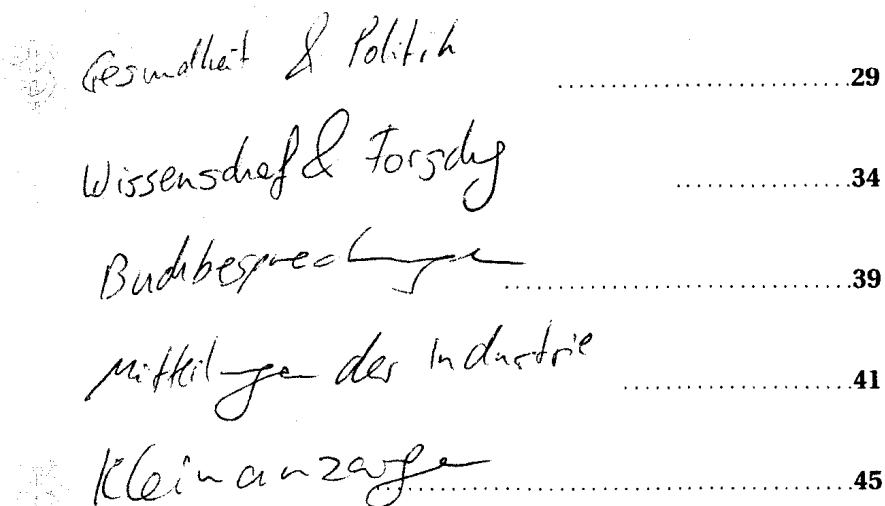 Gesundheit & Politik ..............................29
Wissenschaf & Forschg ................34
Buchbesprechungen ........................................39
Mitteilungen der Industrie ......................41
Kleinanzeigen ..................................................45